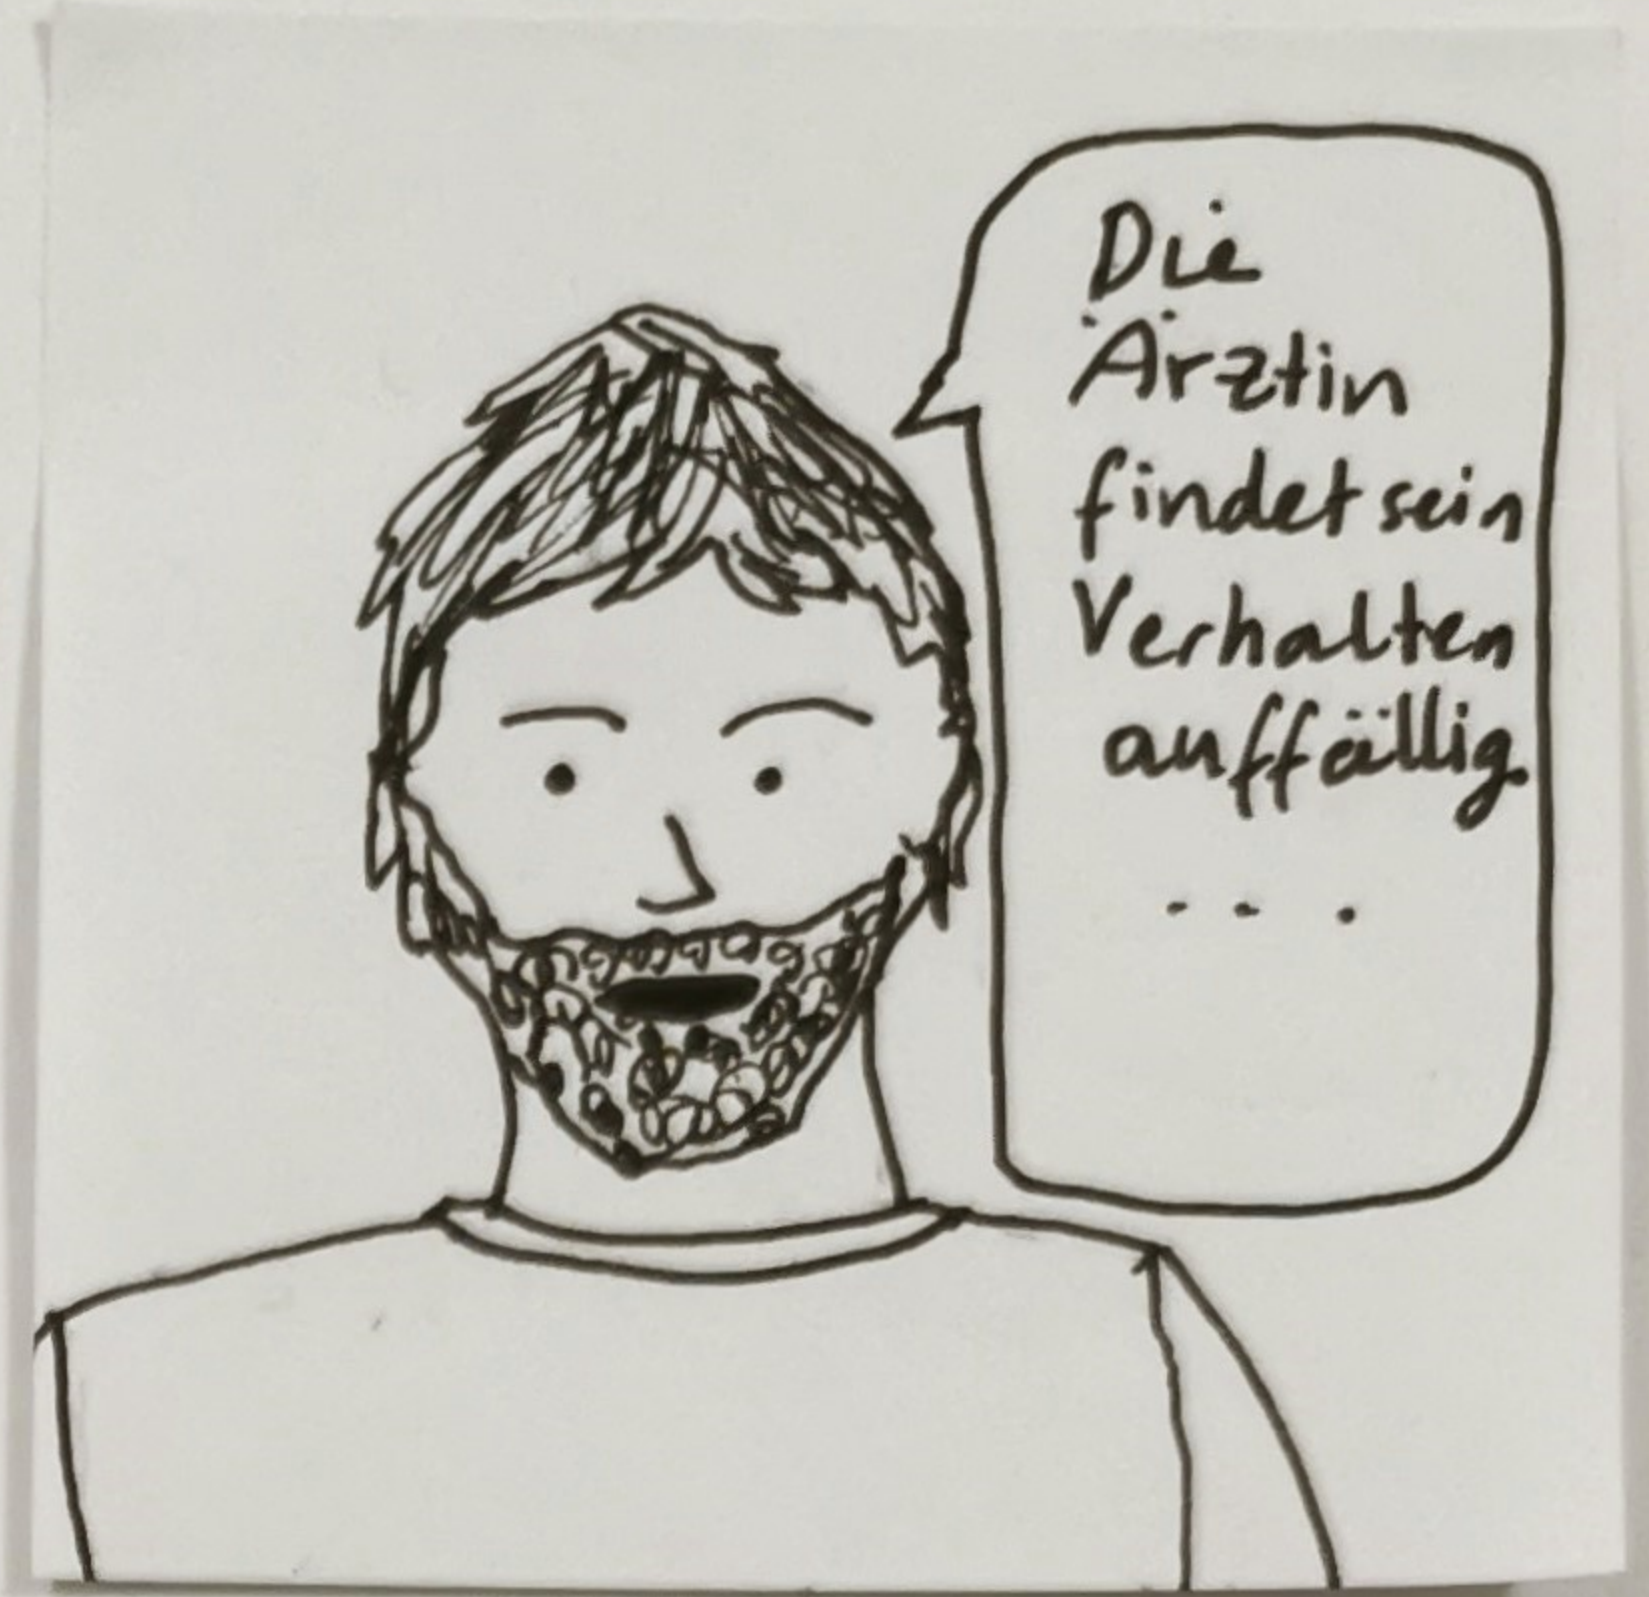 Die
Ärztin
findet sein
Verhalten
auffällig.
...